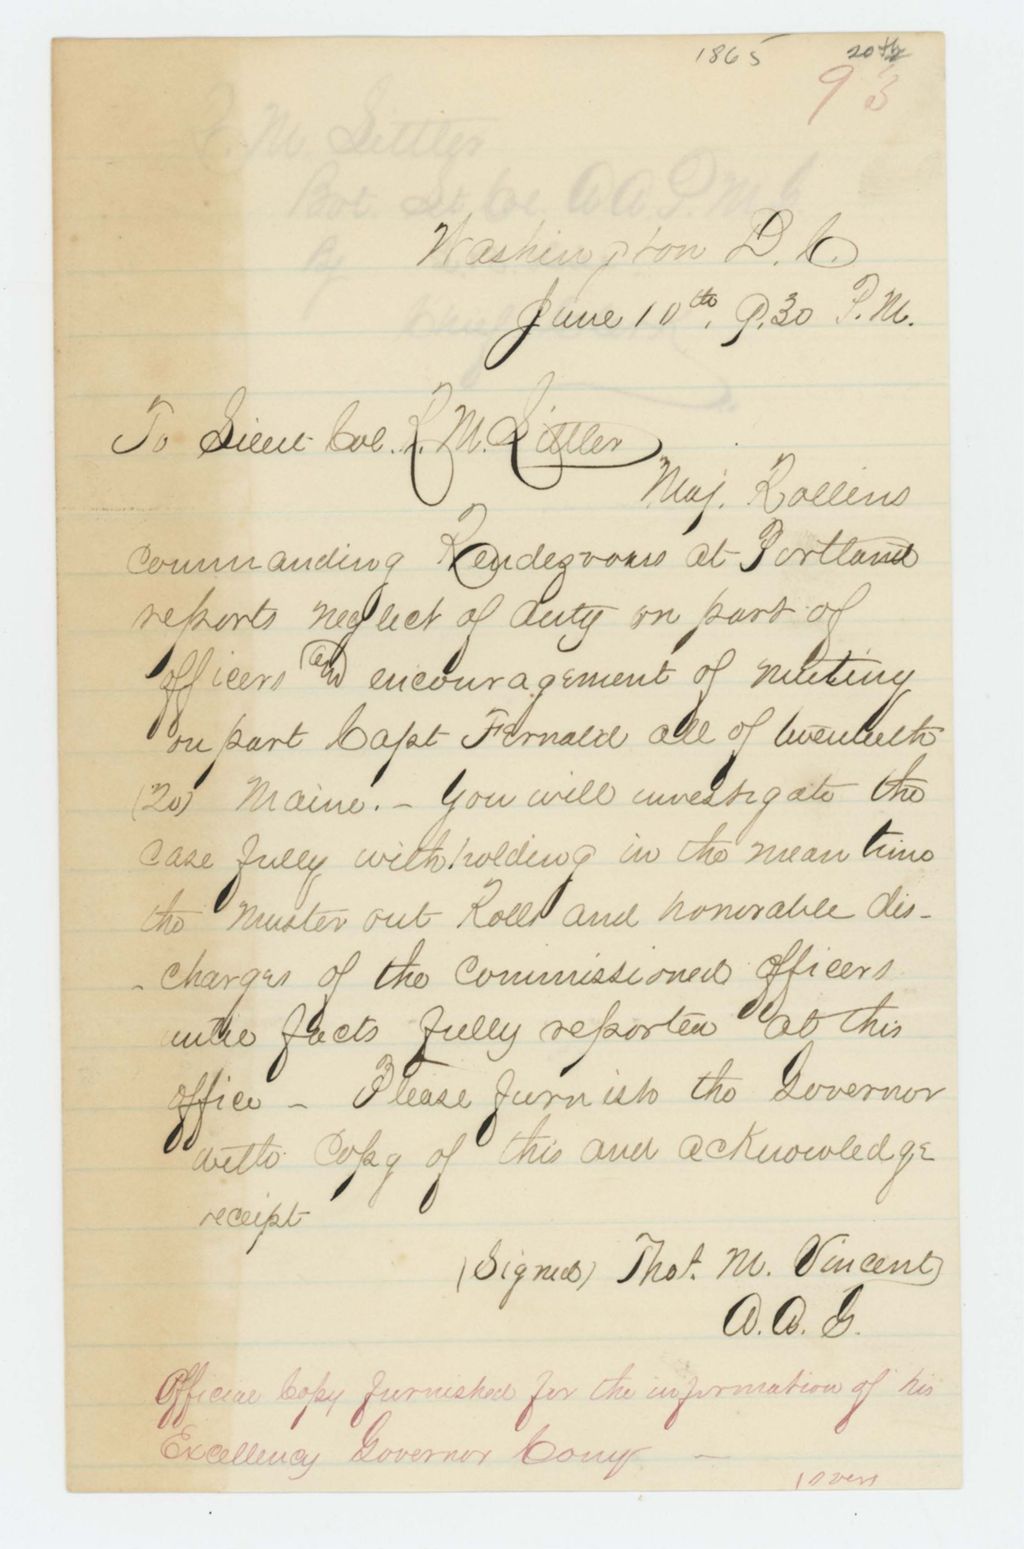 1865 20th
93
Washington D.C.
June 10th. 9.30 P.M.
To Lieut Col. R. M. Littler
Maj. Rollins
commanding Rendezvous at Portland
reports neglect of duty on part of
officers and encouragement of mutiny
on part Capt Fernald all of twentieth
(20) Maine. - You will investigate the
case fully withholding in the mean time
the Muster out Rolls and honorable dis-
- charges of the commissioned officers
until facts fully reported at this
office - Please furnish the Governor
with copy of this and acknowledge
receipt
(Signed) Thos. M. Vincent
A. A. G.
Official Copy furnished for the information of his
Excellency Governor Cony -
(over